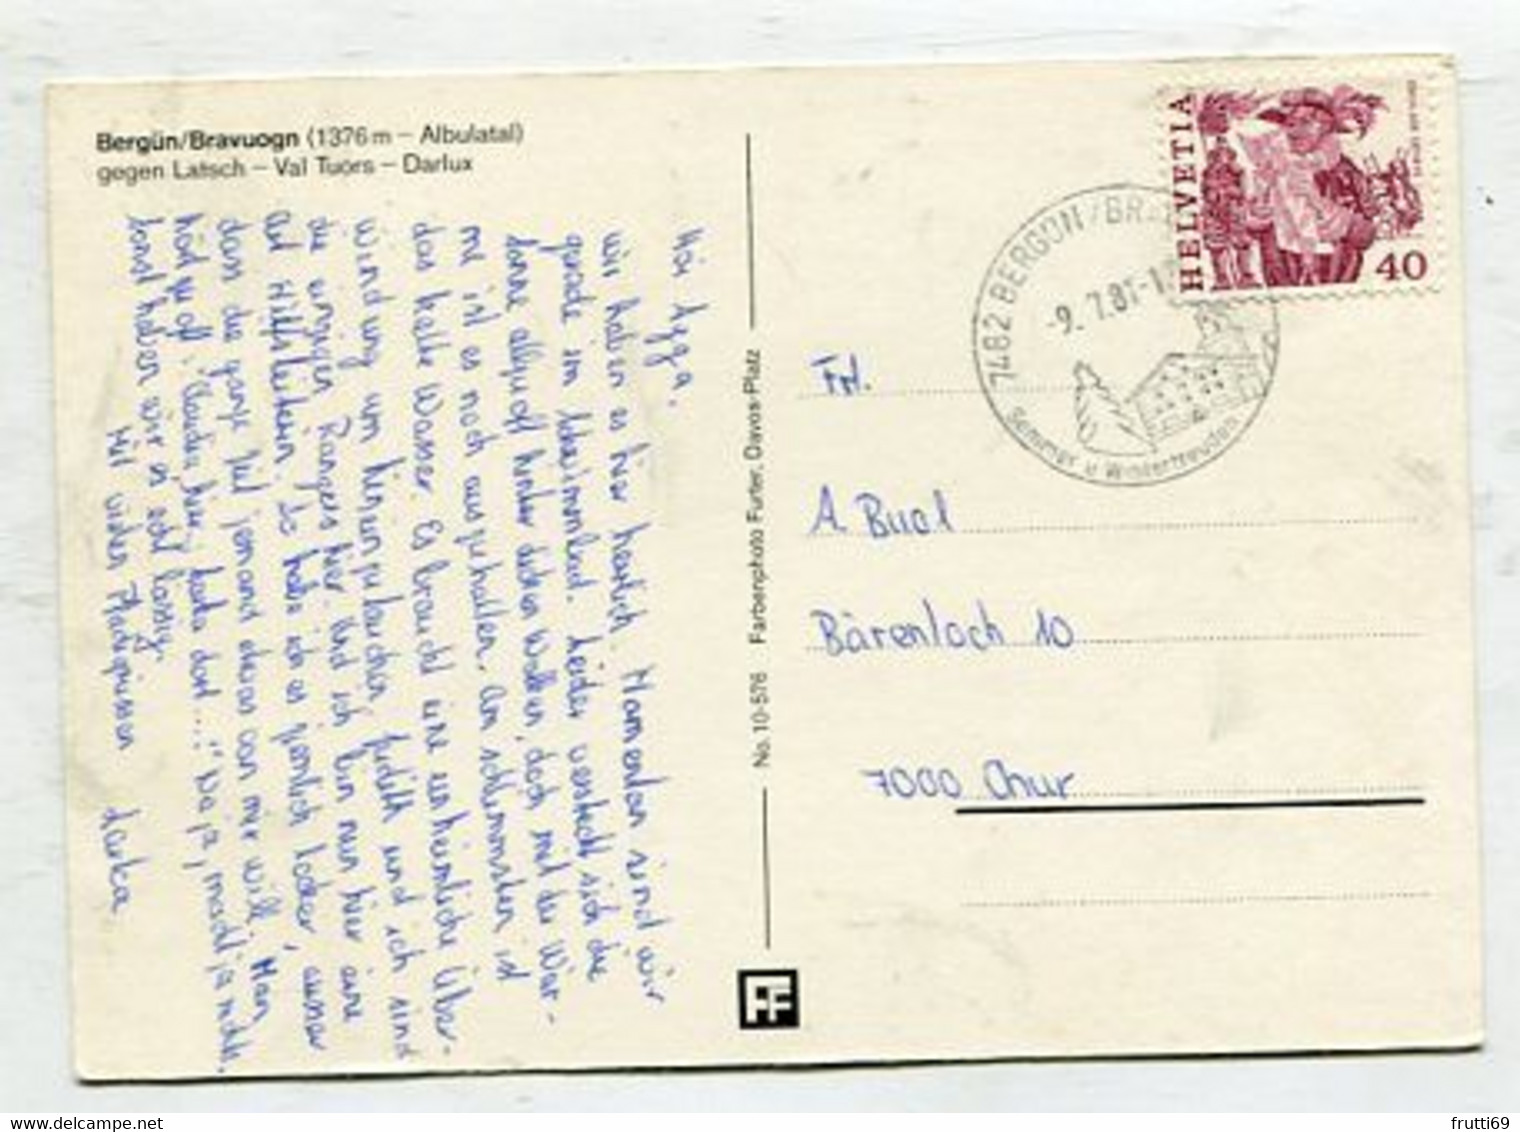 Bergün/Bravuogn (1376 m – Albulatal)
gegen Latsch – Val Tuors – Darlux
Hoi Agga.
wir haben es hier herrlich. Momentan sind wir
gerade im Schwimmbad. Leider versteckt sich die
Sonne allzuoft hinter dichen Wolken, doch mit der Wär-
me ist es noch auszuhalten. Am schlimmsten ist
das kalte Wasser. Es braucht eine unheimliche Über-
windung um hineinzutauchen. Judith und ich sind
die einzigen Rangers hier. Und ich bin nun hier eine
Art Hilfsleiterin. So habe ich es ziemlich locker, ausser
dass die ganze Zeit jemand etwas von mir will. Man
hört zu oft: "Claudia hier, Larka dort..." Naja, macht ja nichts.
Sonst haben wir es echt lässig.
Mit vielen Pfadigrüssen
Larka
No. 10-576 Farbenphoto Furter, Davos-Platz
FF
HELVETIA
40
7482 BERGÜN/BRA
-9. 7.81-1
Sommer u Winterfreuden
Frl.
A. Bual
Bärenloch 10
7000 Chur
www.delcampe.net
frutti69